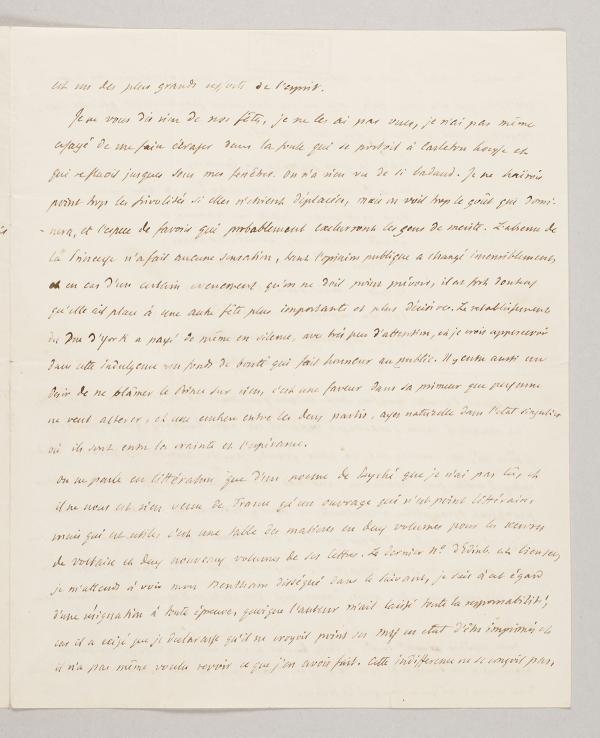 est un des plus grands efforts de l'esprit.
Je ne vous dis rien de nos fêtes, je ne les ai pas vues, je n'ai pas même
essayé de me faire écraser dans la foule qui se portoit à Carleton house et
qui refluoit jusques sous mes fenêtres. On n'a rien vu de si badaud. Je ne haïrois
point trop les frivolités si elles n'étoient déplacées, mais on voit trop le goût qui domi-
nera, et l'espece de favoris qui probablement excluront les gens de mérite. L'absence de
la Princesse n'a fait aucune sensation, tant l'opinion publique a changé insensiblement,
et en cas d'un certain evenement qu'on ne doit point prévoir, il est fort douteux
qu'elle ait place à une autre fête plus importante et plus décisive. Le retablissement
du Duc d'York a passé de même en silence, avec très peu d'attention, et je crois appercevoir
dans cette indulgence un fonds de bonté qui fait honneur au public. Il y entre aussi un
desir de ne blâmer le Prince sur rien, c'est une faveur dans sa primeur que personne
ne veut alterer, et une enchere entre les deux partis, assez naturelle dans l'état singulier
où ils sont entre la crainte et l'espérance.
on ne parle en littérature que d'un poeme de Psyché que je n'ai pas lu, et
il ne nous est rien venu de France qu'un ouvrage qui n'est point littéraire
mais qui est utile: c'est une table des matieres en deux volumes pour les oeuvres
de voltaire et deux nouveaux volumes de ses lettres. Le dernier No. d'Edinb. est bien sec,
je m'attends à voir mon Bentham disséqué dans le suivant, je suis à cet égard
d'une résignation à toute épreuve, quoique l'auteur m'ait laissé toute la responsabilité,
car il a exigé que je declarasse qu'il ne croyoit point ses mss en état d'être imprimés et
il n'a pas même voulu revoir ce que j'en avois fait. Cette indifference ne se conçoit pas,